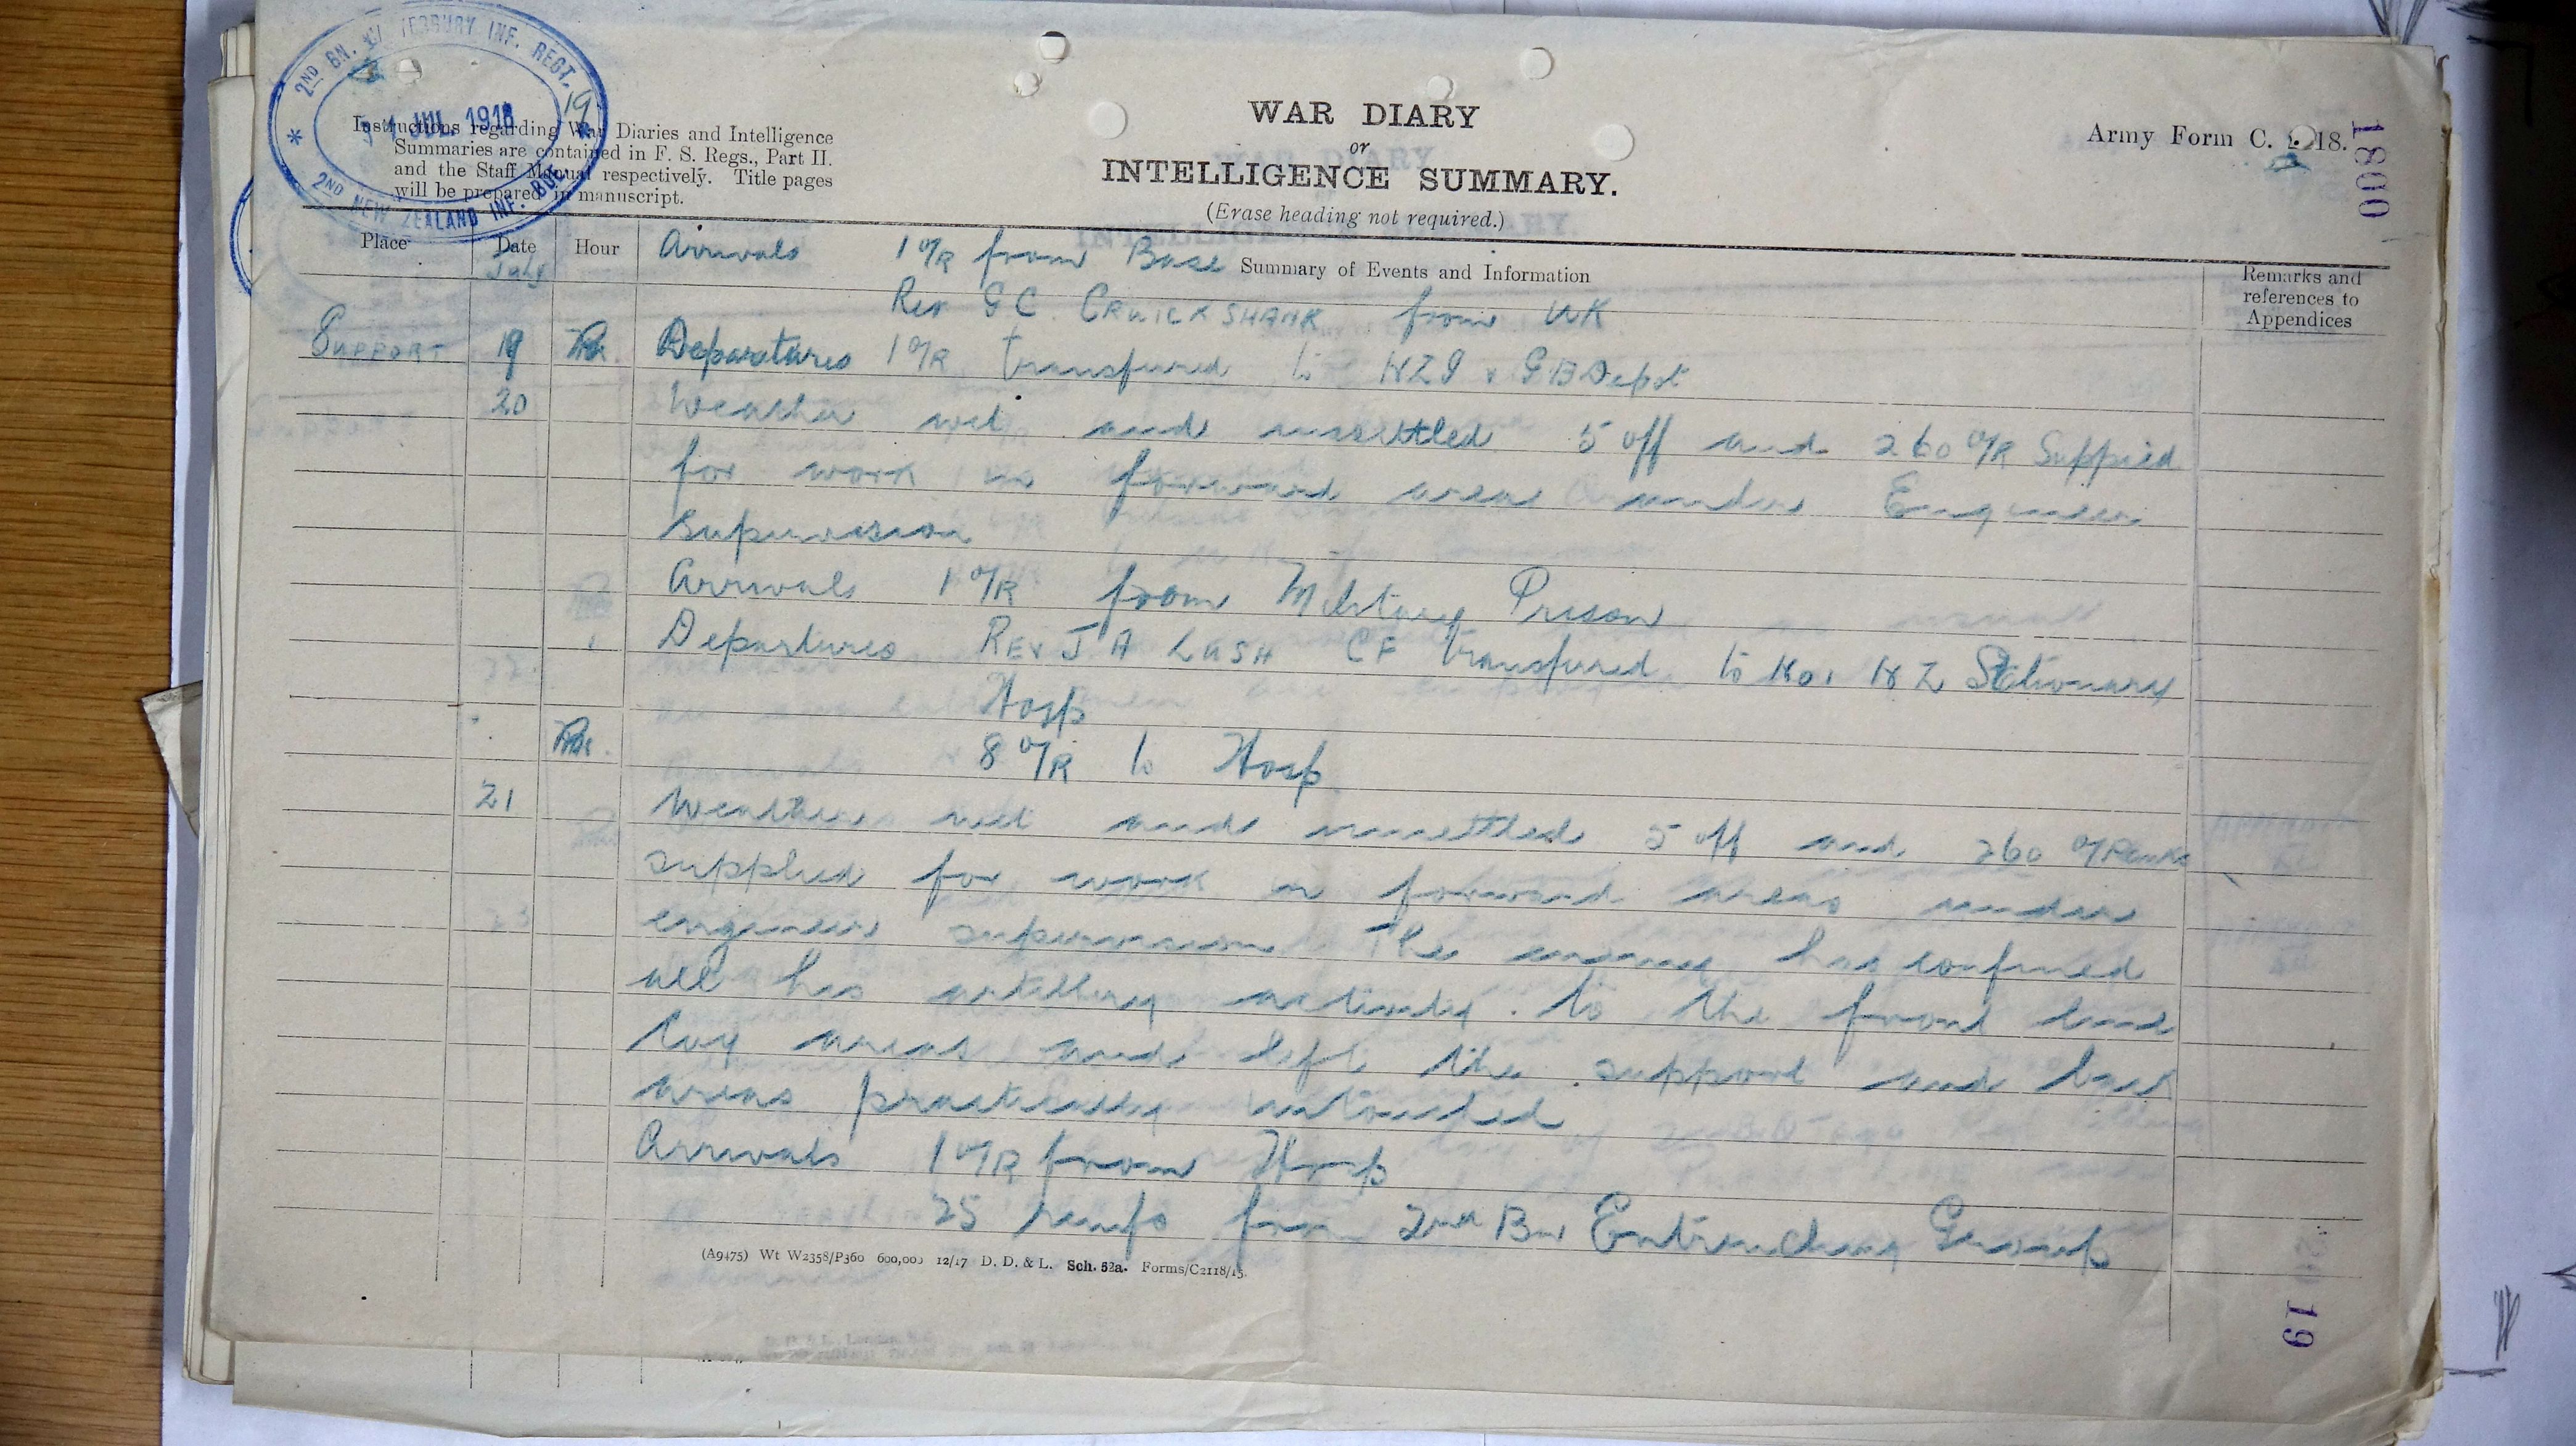 2ND BN. CANTERBURY INF. REGT.
31 JUL 1918
2ND NEW ZEALAND INF. BDE.
19
Instructions regarding War Diaries and Intelligence
Summaries are contained in F. S. Regs., Part II.
and the Staff Manual respectively. Title pages
will be prepared in manuscript.
WAR DIARY
or
INTELLIGENCE SUMMARY.
(Erase heading not required.)
Army Form C. 2118.
1800
Place Date Hour Summary of Events and Information Remarks and references to Appendices
July
Arrivals 1 O/R from Base
Rev G C CRUICKSHANK from UK
SUPPORT 19 Departures 1 O/R transfured to NZ G B Depot
20 Weather wet and unsettled 5 off and 260 O/R Supplied
for work in forward areas under Engineer
supervision
Arrivals 1 O/R from Military Prison
Departures REV J A LUSH CF transfured to No 1 N Z Stationary
Hosp
8 O/R to Hosp
21 Weather wet and unsettled 5 off and 260 O/Ranks
supplied for work in forward areas under
engineer supervision The enemy has confined
all his artillery activity to the front line
areas and left the support and back
areas practically untouched
Arrivals 1 O/R from Hosp
25 reinfs from 2nd Bn Entrenching Group
(A9475) Wt W2358/P360 600,000 12/17 D. D. & L. Sch. 52a. Forms/C2118/15.
19